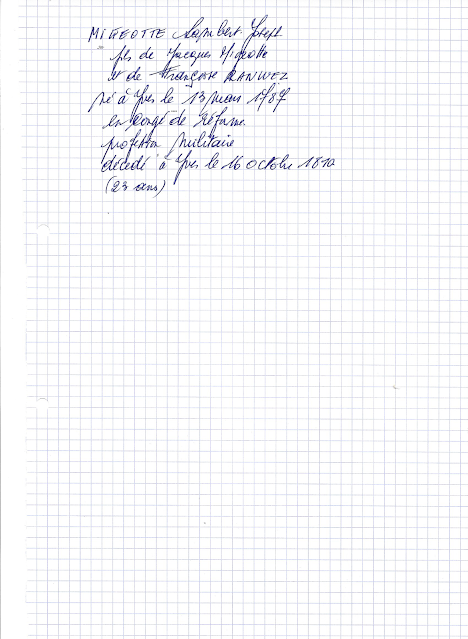 MIGEOTTE Lambert Joseph
fils de Jacques Migeotte
et de Françoise RANWEZ
né à Yves le 13 mars 1787
en congé de Réforme
profession militaire
décédé à Yves le 16 octobre 1810
(23 ans)